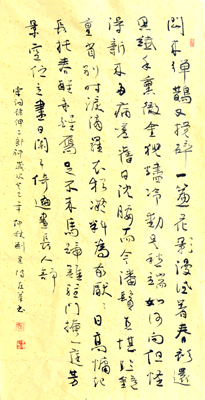 悶來彈鵲又攪碎一簾花影漫試著春衫還
思纖手熏徹金猊燼冷動是愁端如何向但怪
得新來多病嗟舊日沈腰而今潘鬢怎堪臨鏡
重省別時淚滴羅衣猶凝料爲我厭厭日高慵起
長托春酲未醒雁足不來馬蹄難駐門掩一庭芳
景空佇立盡日闌干倚遍晝長人靜
宋詞徐伸二郎神歲次年仲秋劉書